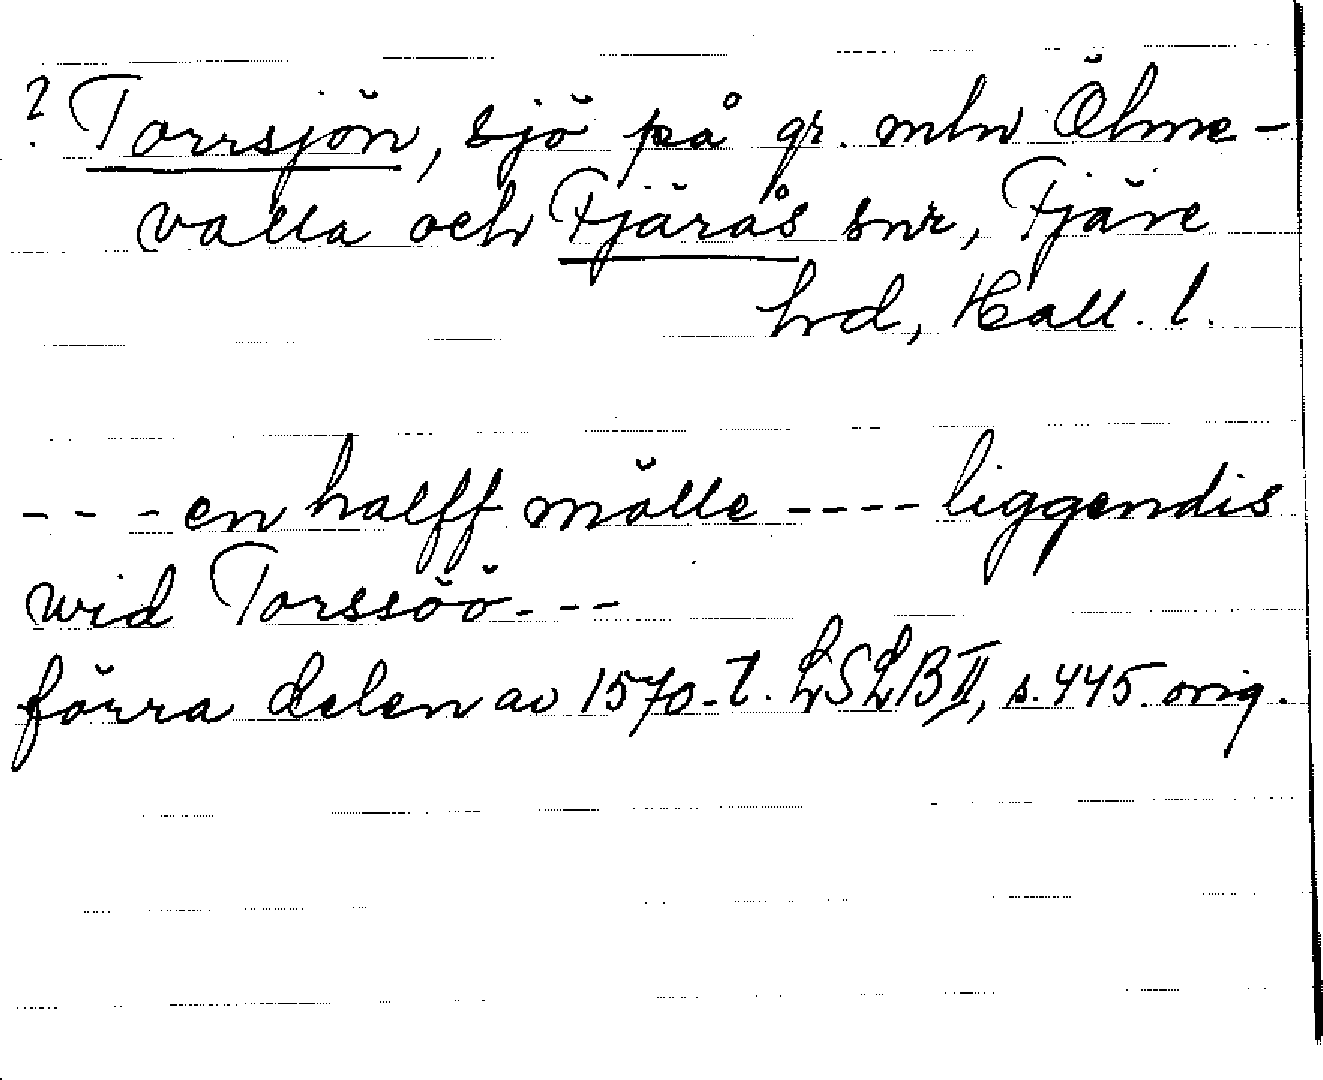 ? Torrsjön, sjö på gr. mln Ölme-
valla och Fjärås snr, Fjäre
hrd, Hall. l.
- - - en halff mölle - - - - liggendis
wid Torssöö - - -
förra delen av 1570-t. LSLB II, s. 445. orig.